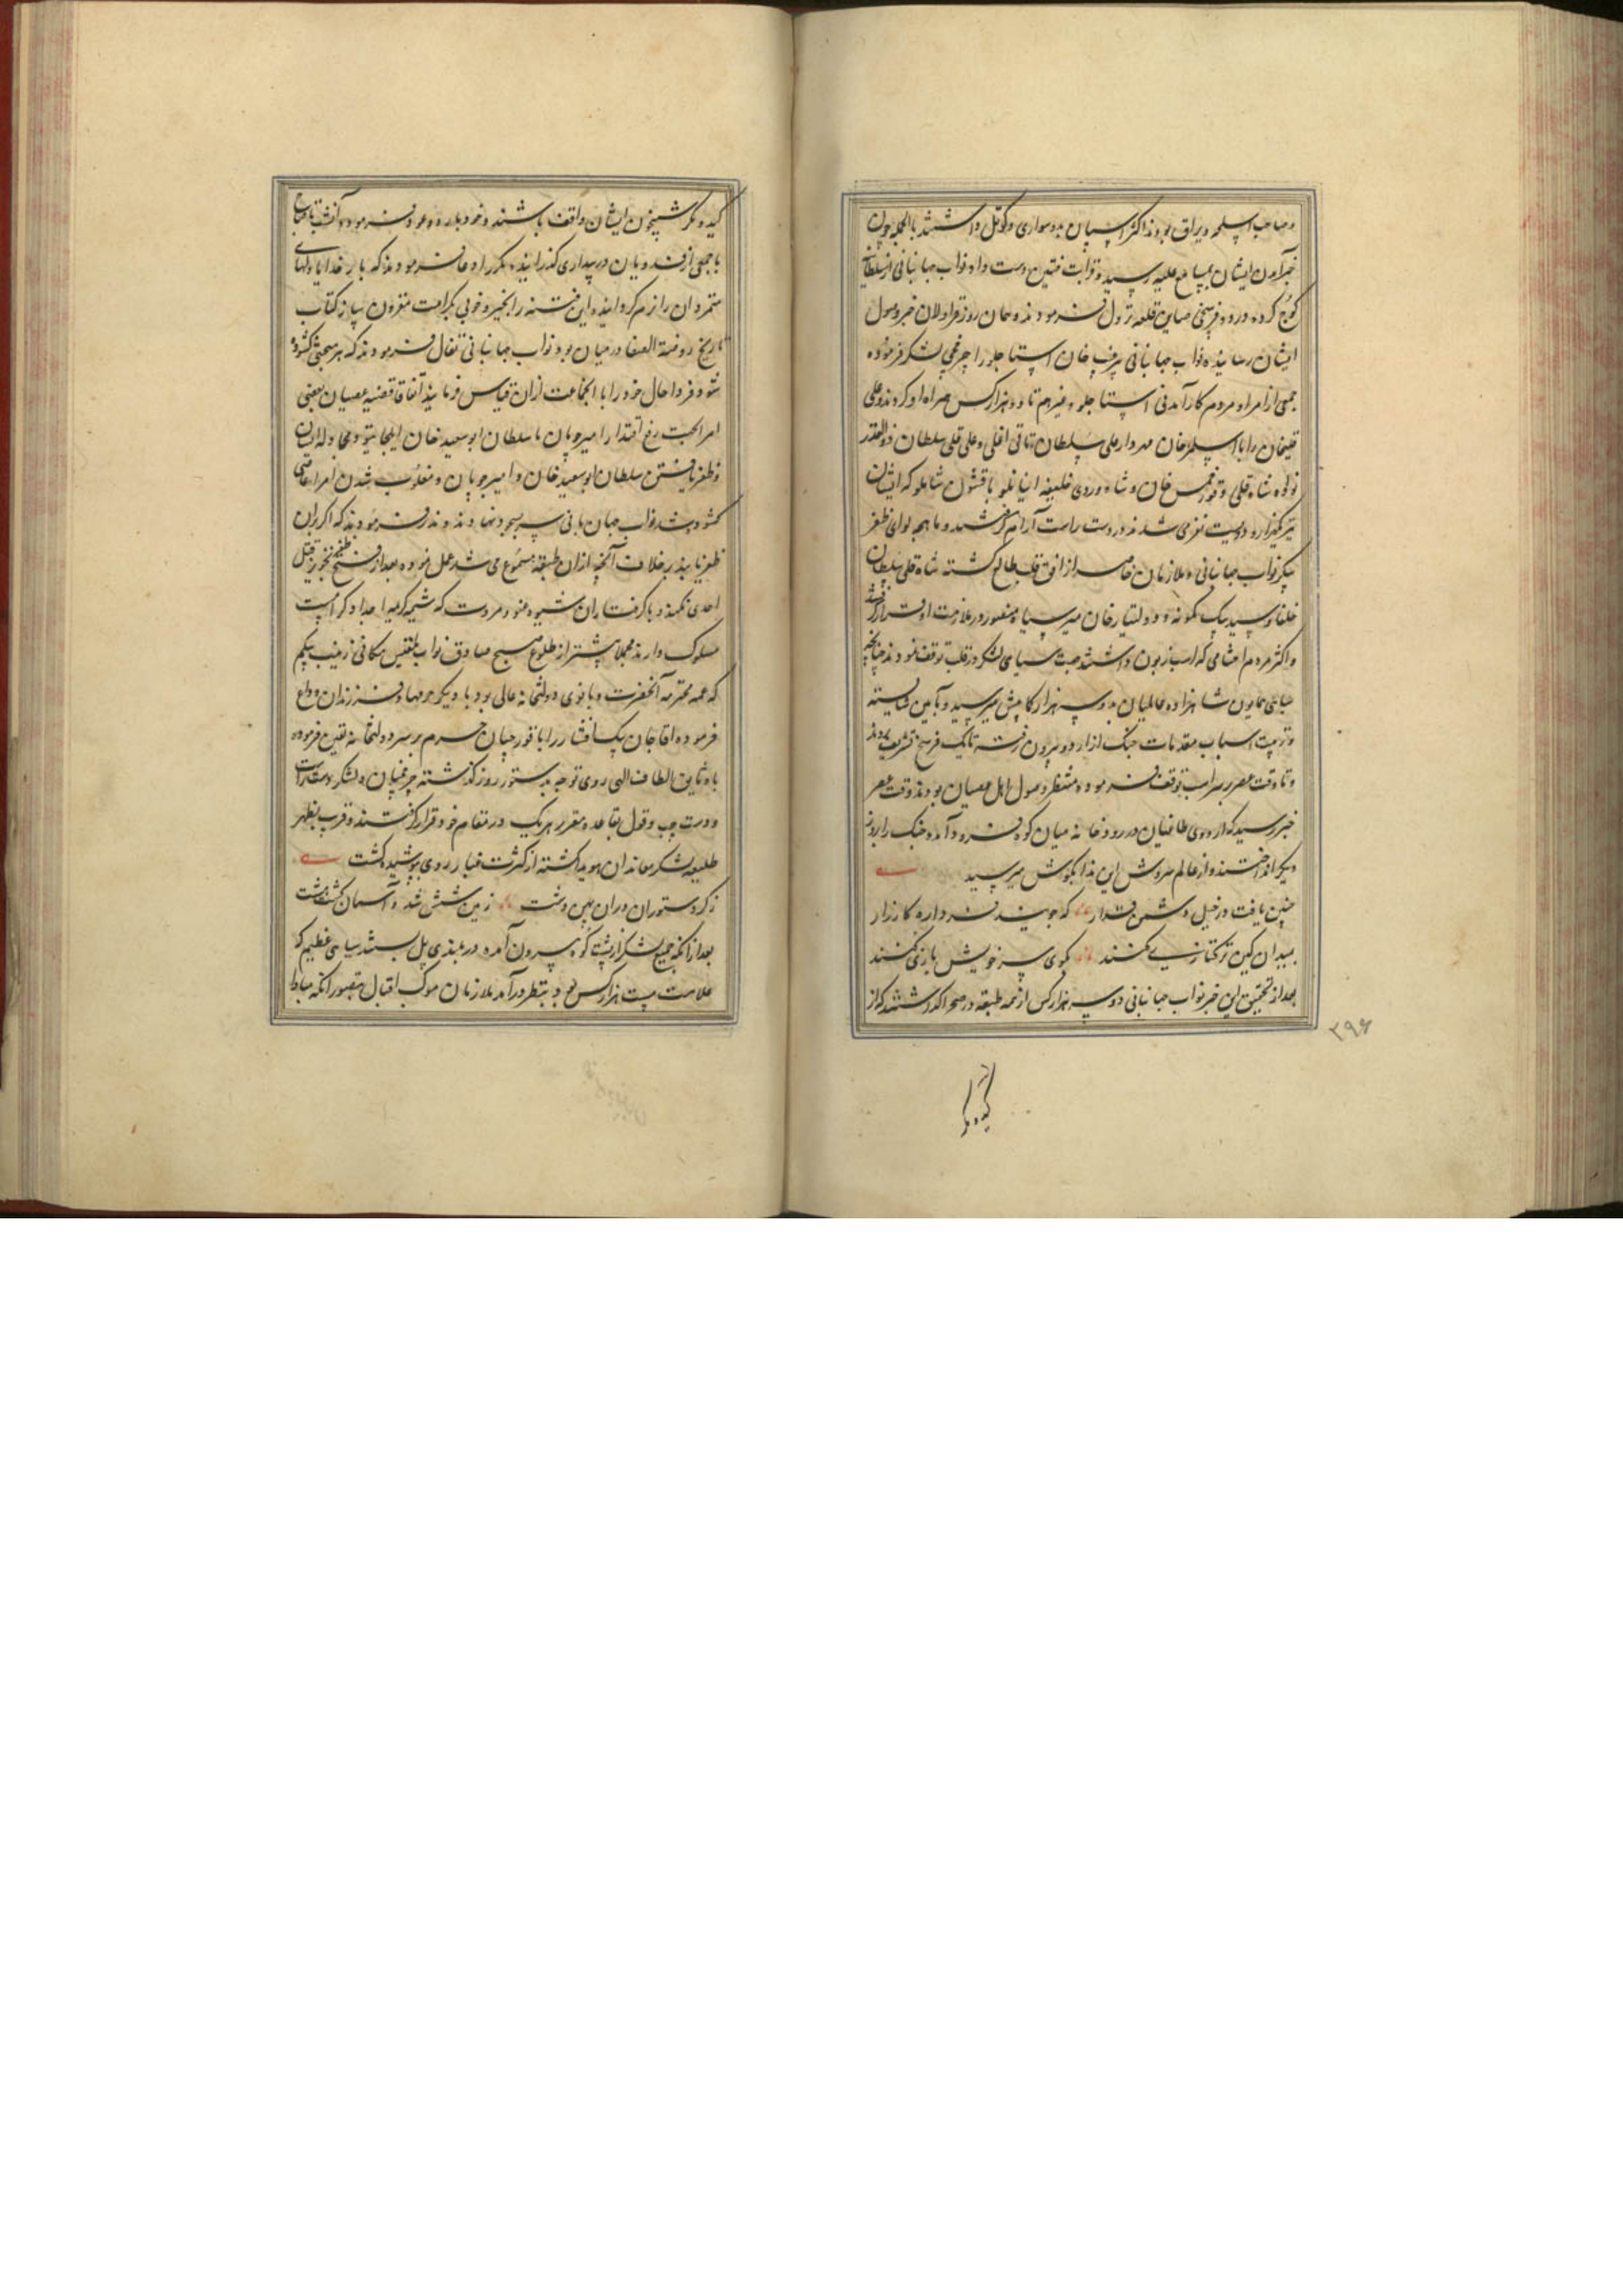 و صاحب اسلحه و یراق بودند اکثر اسپان بدوسواری و کوتل داشتند بالجمله چون
خبر آمدن ایشان بمسامع علیه رسیده قرابت فئتین دست داد نواب جهانبانی از سلطانیه
کوچ کرده در دو فرسخی صاین قلعه نزول فرمودند و همان روز قراولان خبر وصول
ایشان رسانیده نواب جهانبانی خان استاجلو را چرخچی لشکر فرموده
جمعی از امرا و مردم کارآمدنی استاجلو و غیرهم تا دو هزار کس همراه او کردند و علی
قلیخان را با اسلمز خان مهردار علی سلطان تاتی اغلی و علی قلی سلطان ذوالقدر
نواده شاه قلی و قورخمس خان و شاه وردی خلیفه اینانلو با قشون شاملو که ایشان
نیز یکهزار و دویست نفر می شدند در دست راست آرام گرفتند و ماهچه لوای ظفر
پیکر نواب جهانبانی و ملازمان خاصه از افق قلب طالع گشته شاه قلی سلطان
خلفا و سید بیک کمونه و دولتیار خان میر سپاه منصور در ملازمت او قرار گرفتند
و اکثر مردم احشامی که اسب زبون داشتند جهت سیاهی لشکر در قلب توقف نمودند چنانچه
سپاهی همایون شاهزاده عالمیان بده سه هزار کما بیش میرسید و بآیین شایسته
و ترتیب اسباب مقدمات جنگ از اردو بیرون رفته تا یک فرسخ تشریف بردند
و تا وقت عصر بر سر اسب توقف فرموده منتظر وصول اهل عصیان بودند وقت عصر
خبر رسید که اردوی طاغیان در رودخانه میان کوه فرود آمده جنگ را بروز
دیگر انداختند و از عالم سروش این ندا بگوش میرسید
چنین یافت در خیل دشمن قرار که جویند فردا ره کارزار
بمیدان کین ترکتازی کنند بگوی سر خویش بازی کنند
بعد از تحقیق این خبر نواب جهانبانی دو سه هزار کس از همه طبقه در صحرا گذاشتند که از
۳۹۶
کید و مکر
کید و مکر شبیخون ایشان واقف باشند و خود باردو عود فرموده آنشب تا صباح
با جمعی از فدویان در بیداری گذرانیده مکرر ادعا فرمودند که بار خدایا دلهای
متمردان را نرم گردان و این فتنه را بخیر و خوبی بکرامت مقرون ساز کتاب
تاریخ روضة الصفا در میان بود نواب جهانبانی تفال فرمودند که هر مبحثی گشوده
شود فردا حال خود را با انجماعت ازان قیاس فرمایند اتفاقا قضیه عصیان بعضی
امرا بجهت رفع اقتدار امیر چوپان با سلطان ابوسعید خان ایلجایتو و مجادله ایشان
و ظفر یافتن سلطان ابوسعید خان و امیر چوپان و مغلوب شدن امراء عاصی
گشوده شد نواب جهان بانی سر بسجود نهادند و نذر فرمودند که اگر بران
ظفر یابند بر خلاف آنچه ازان طبقه مسموع می شد عمل نموده بعد از فتح و ظفر تجویز قتل
احدی نکنند و با گرفتاران شیوه عفو و مروت که شیمه کریمه اجداد کرام است
مسلوک دارند مجملا پیشتر از طلوع صبح صادق نواب بلقیس مکانی زینب بیگم
که عمه محترمه آنحضرت و بانوی دولتخانه عالی بود با دیگر حرمها و فرزندان وداع
فرموده اقاجان بیک افشار را با قورچیان حرم بر سر دولتخانه تعین فرموده
با وثایق الطاف الهی روی توجه بدستور روز گذشته چرخچیان و لشکر دست راست
و دست چپ و قول بقاعده مقرر هر یک در مقام خود قرار گرفتند و قریب بظهر
طلیعه لشکر معاندان هویدا گشته از کثرت غبار روی پوشیده گشت
ز گرد ستوران دران پهن دشت زمین شش شد و آسمان گشت هشت
بعد از آنکه جمیع لشکر از پشت کوه بیرون آمده در بلندی پل بستند سیاهی عظیم که
علامت بیست هزار کس بود بنظر درآمد ملازمان موکب اقبال بتصور آنکه مبادا